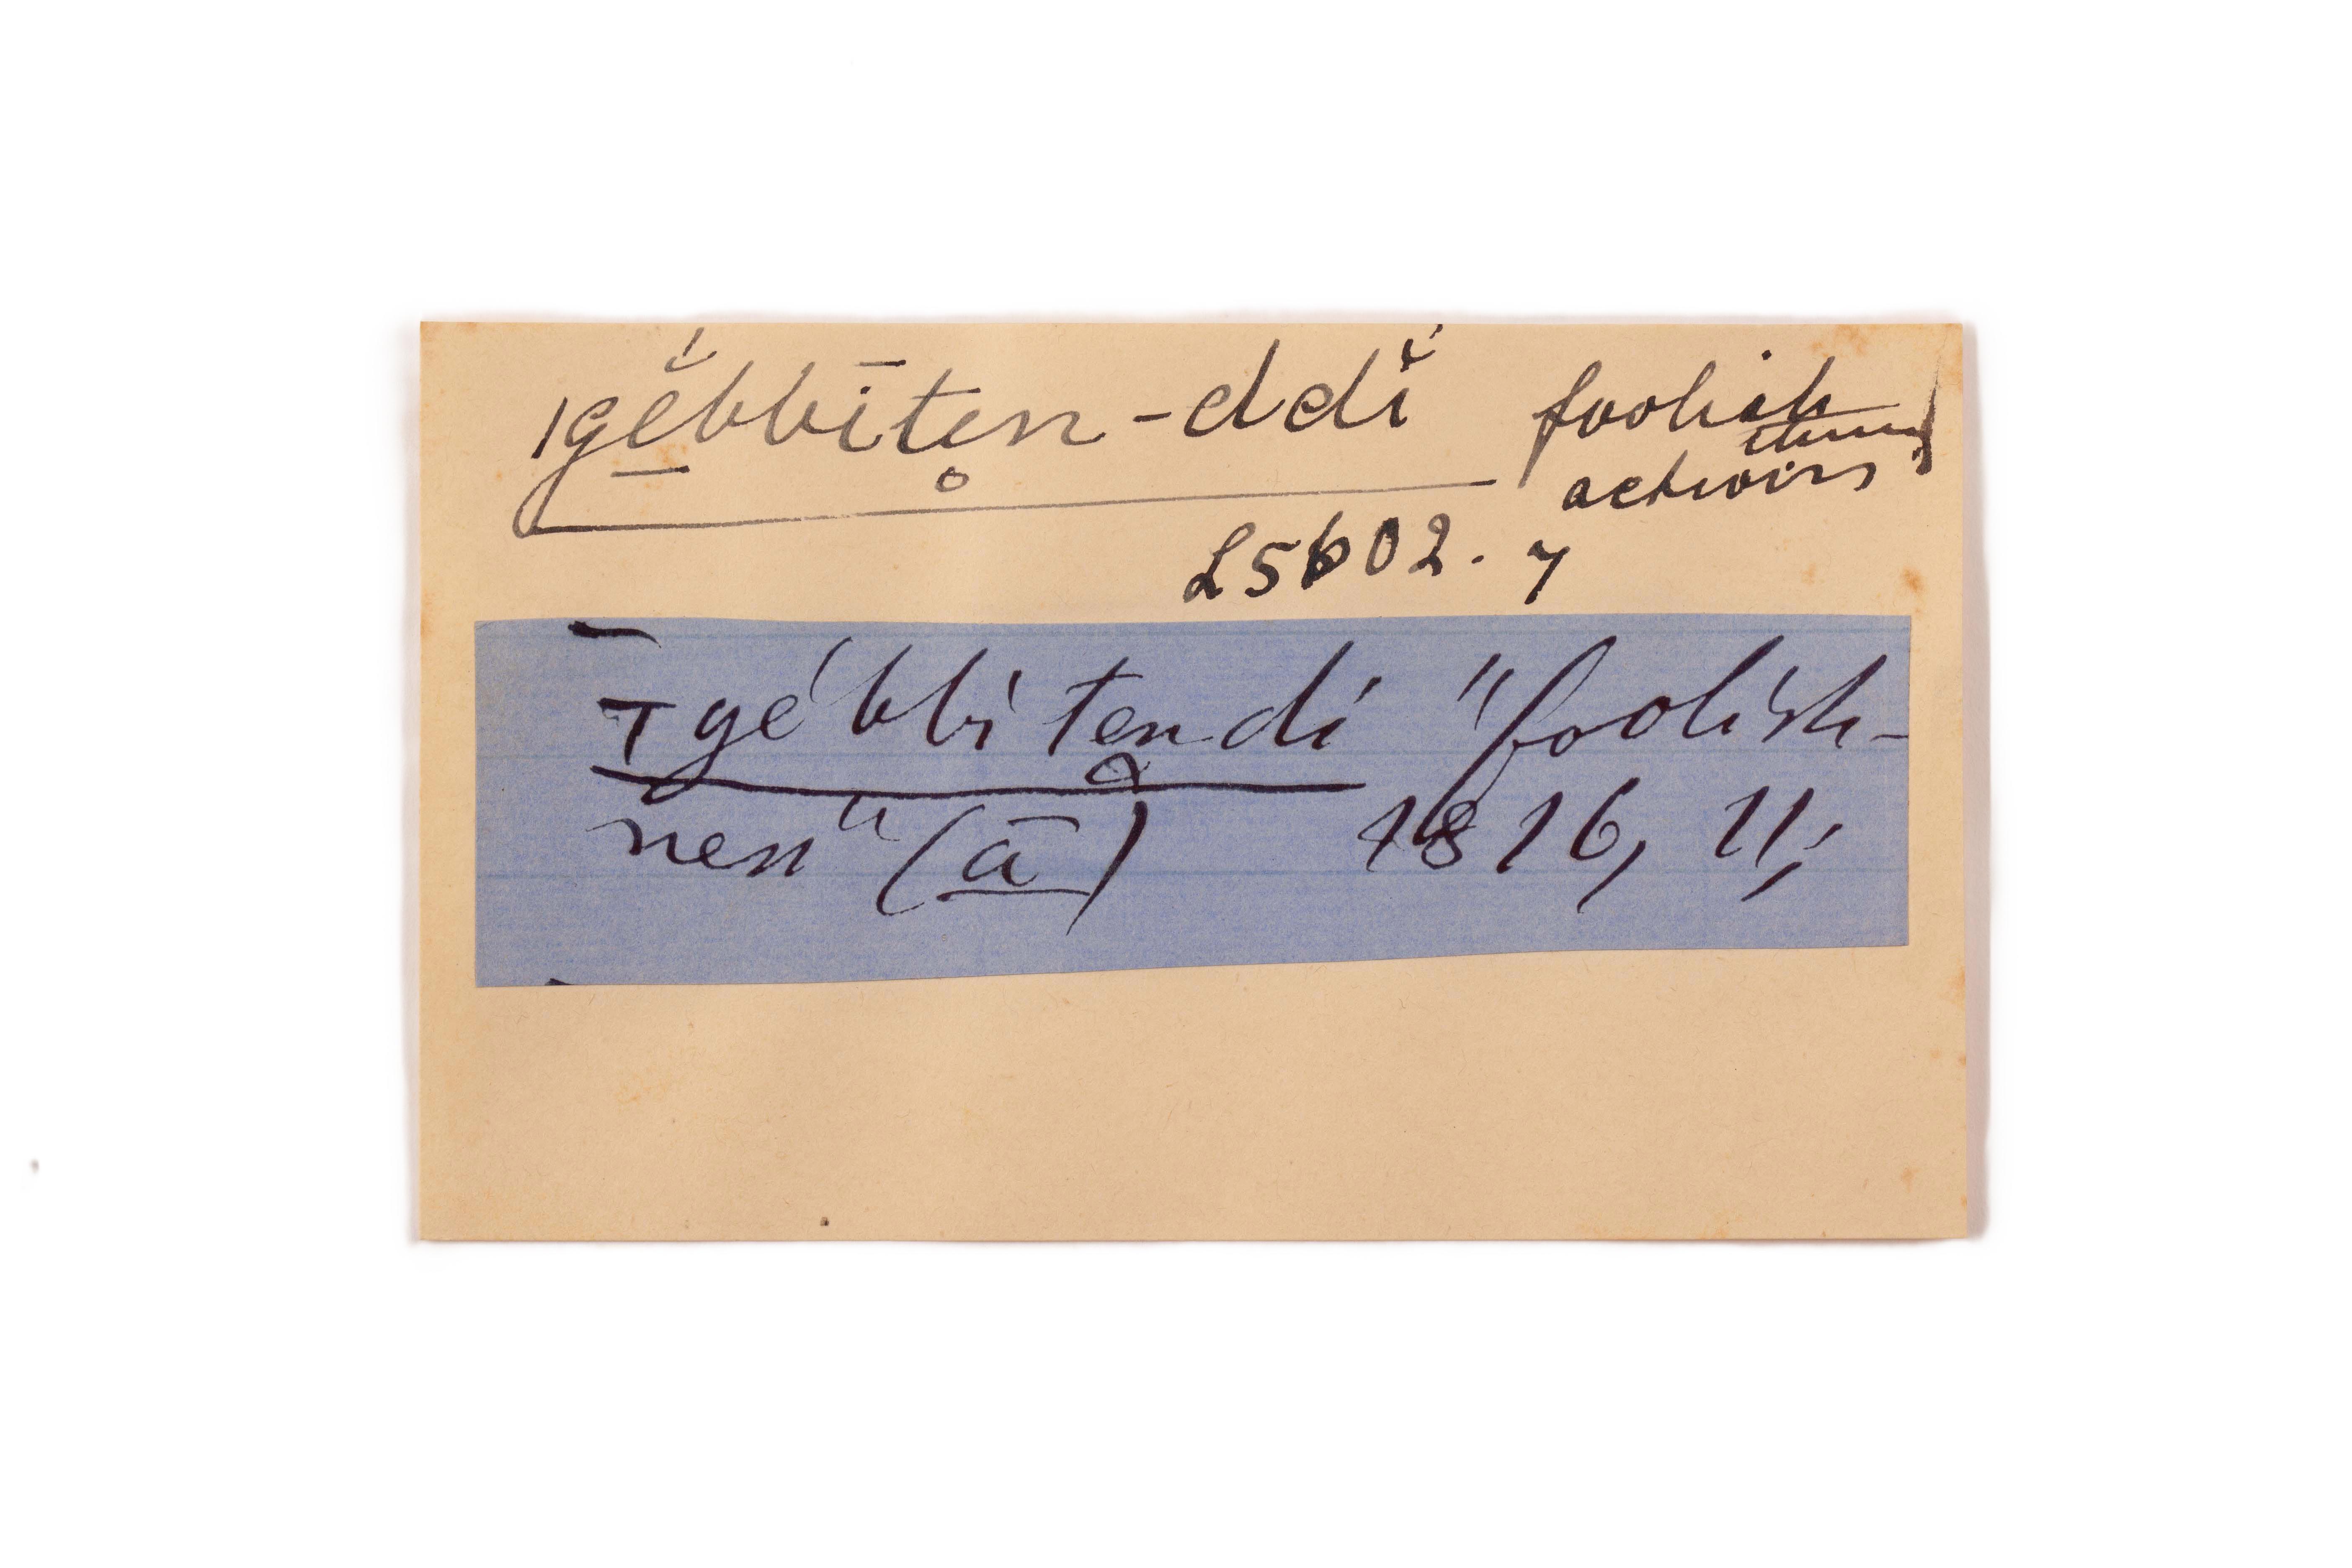 |gĕ́bbīten-ddĭ́ foolish
actions
L5602. 7
⊤gébbitendi "foolish-
ness" (ā) 1816, 11;